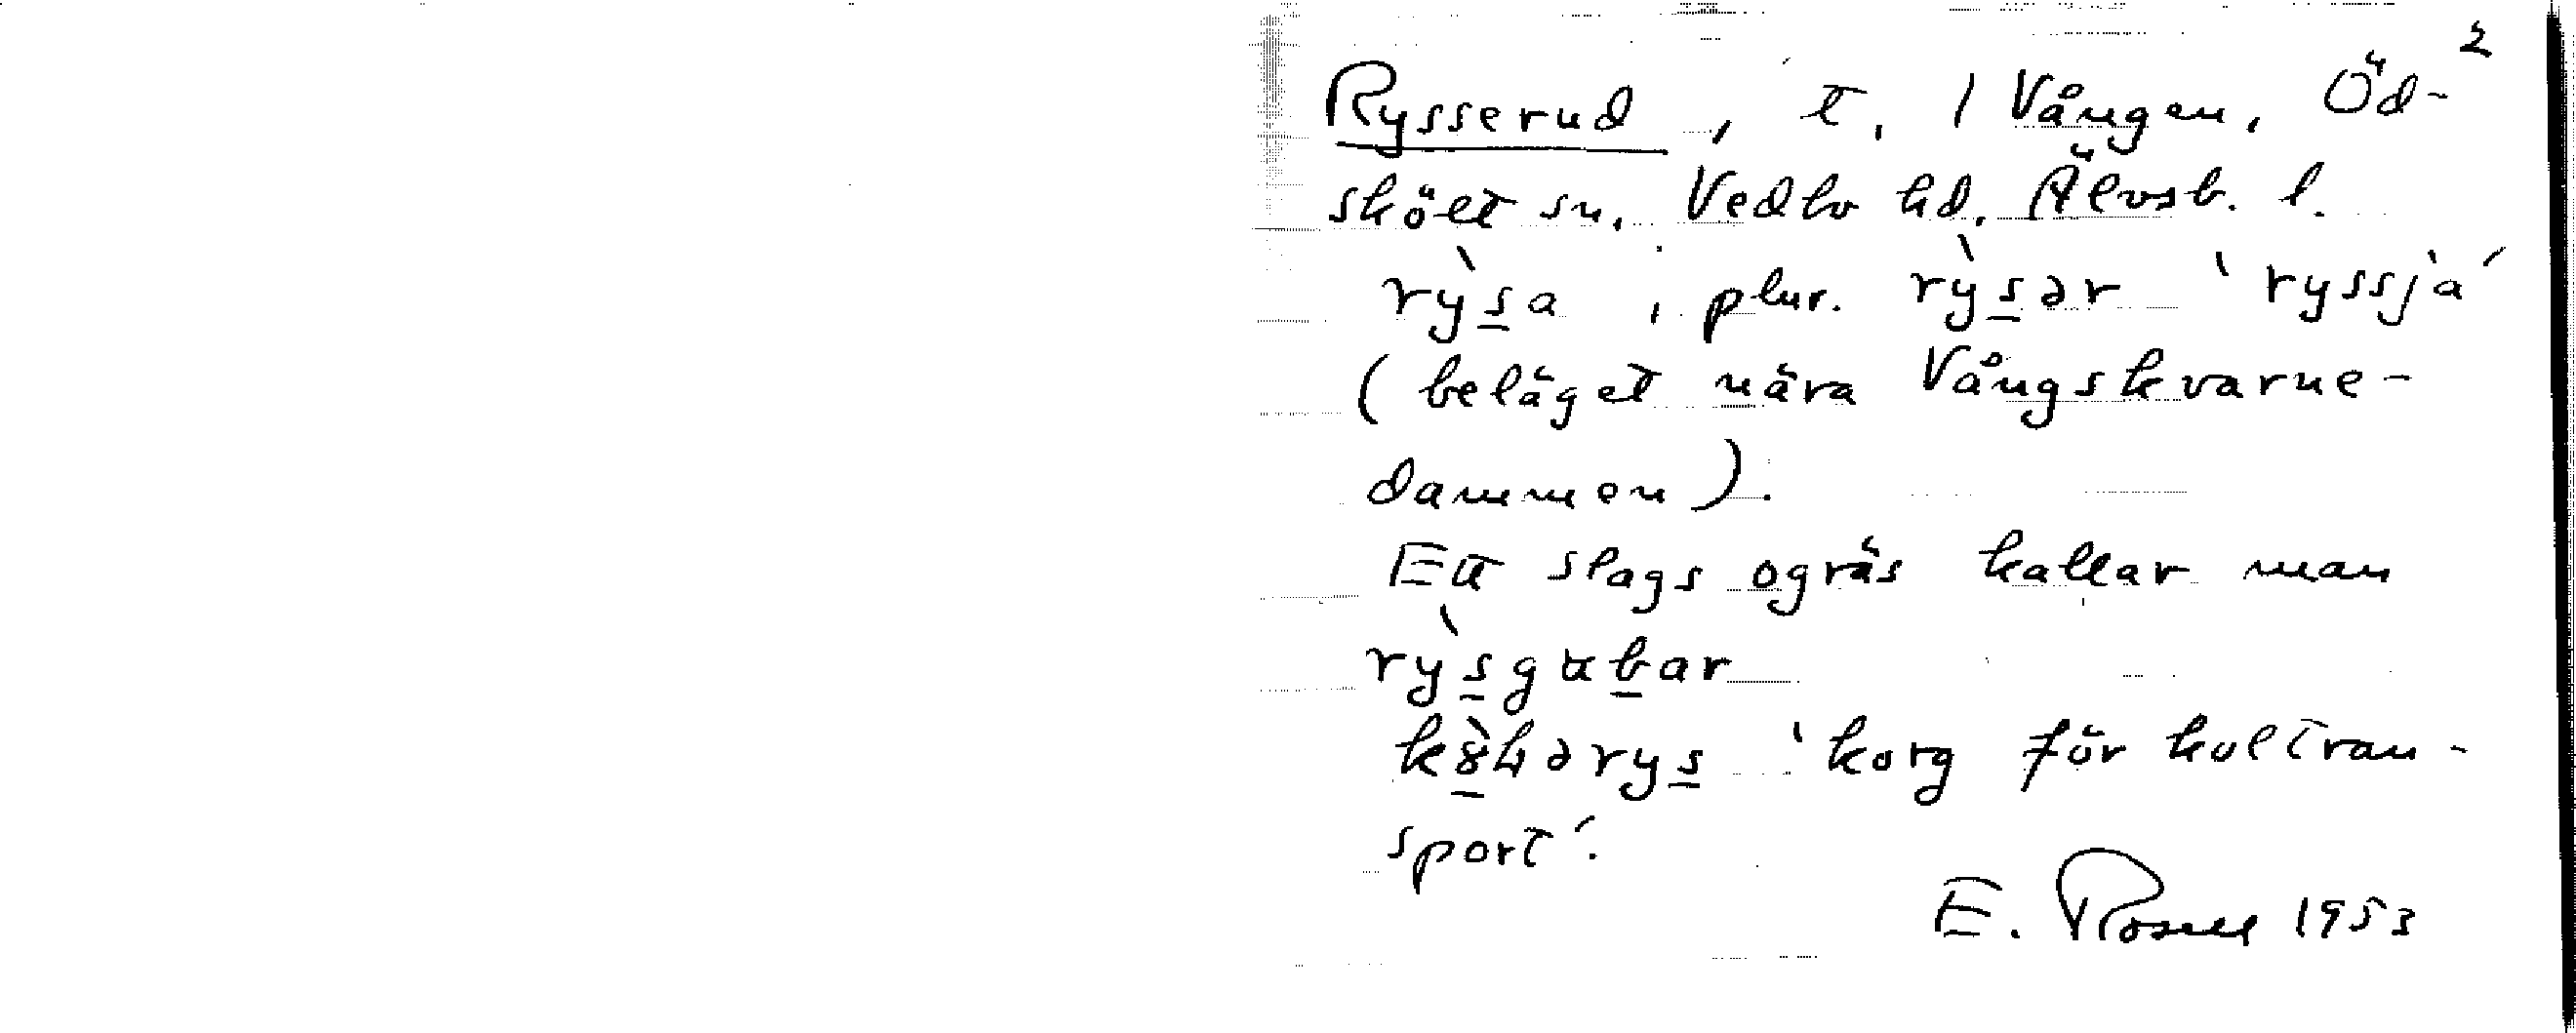 2
Rysserud, t. / Vången, Öd-
skölt sn. Vedbo hd. Älvsb. l.
rỳsa, plur. rỳsər 'ryssja'
(beläget nära Vångskvarne-
dammen).
Ett slags ogräs kallar man
rỳsgubar
'korg för koltran-
sport'.
E. Rosell 1953